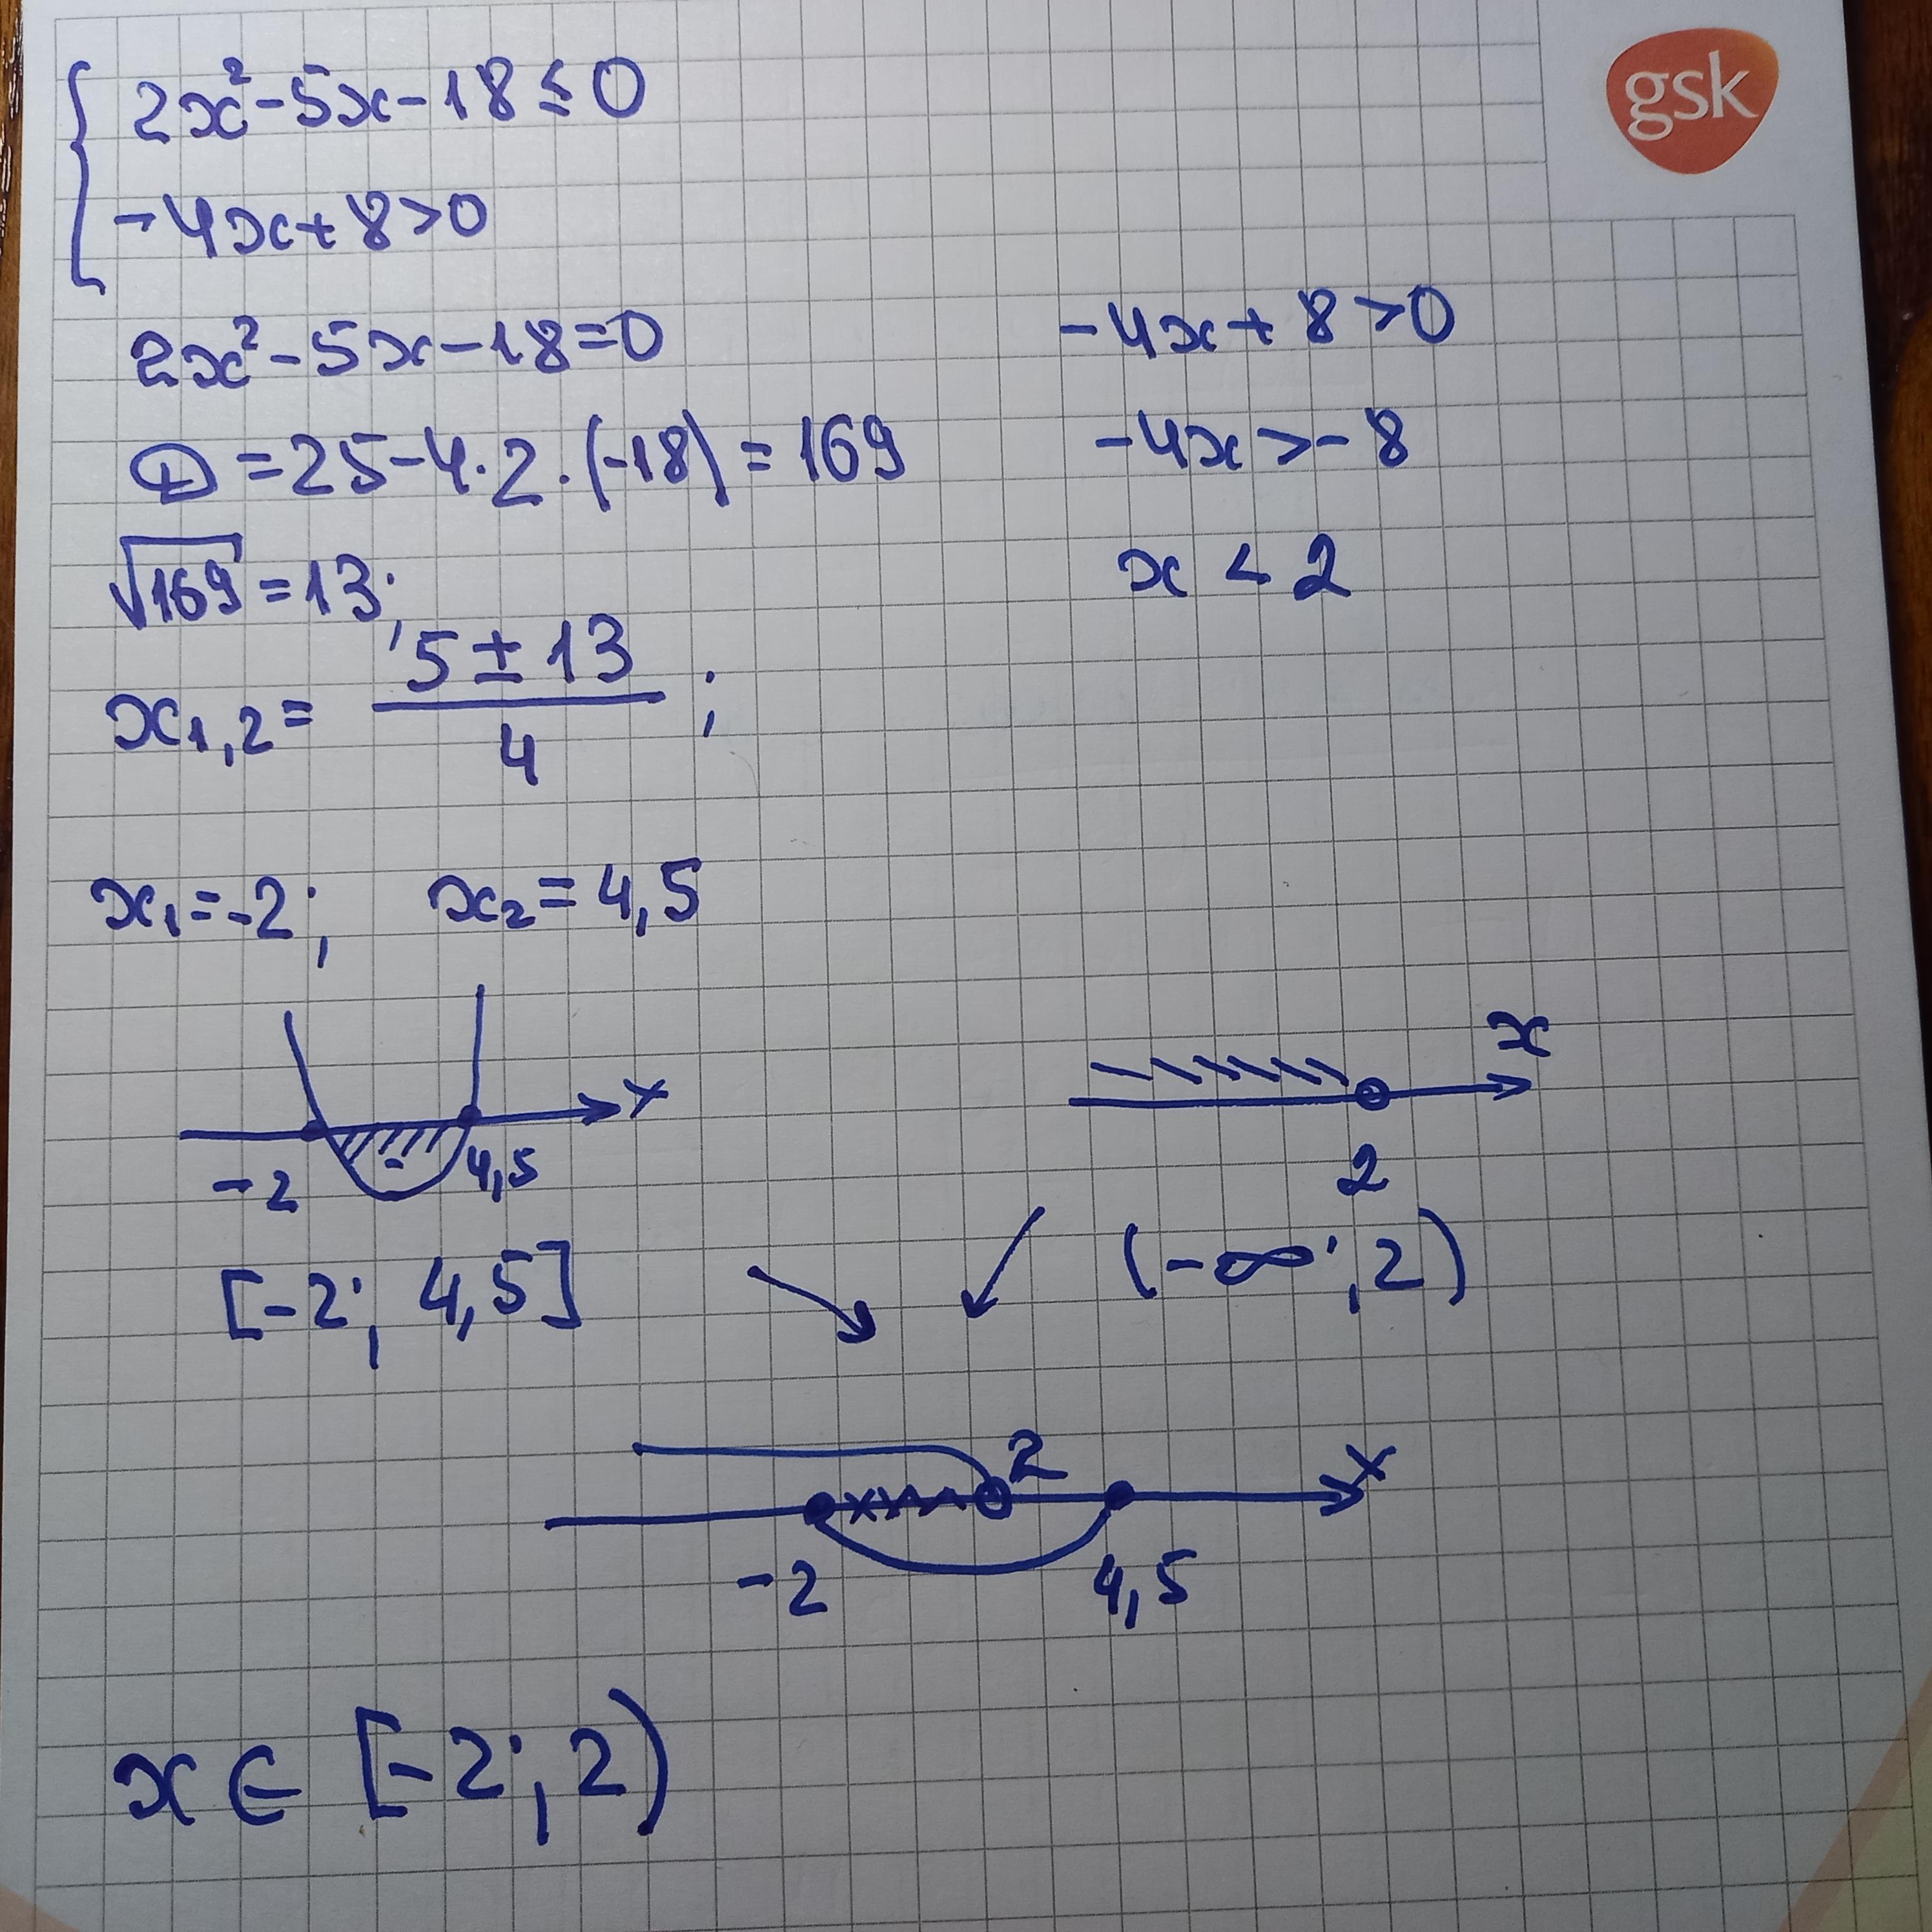 gsk
2x² - 5x - 18 ≤ 0
-4x + 8 > 0
2x² - 5x - 18 = 0
D = 25 - 4 · 2 · (-18) = 169
√169 = 13;
x₁,₂ = (5 ± 13)/4 ;
x₁ = -2; x₂ = 4,5
-4x + 8 > 0
-4x > -8
x < 2
x
-2 4,5
[-2; 4,5]
x
2
(-∞; 2)
2 x
-2 4,5
x ∈ [-2; 2)